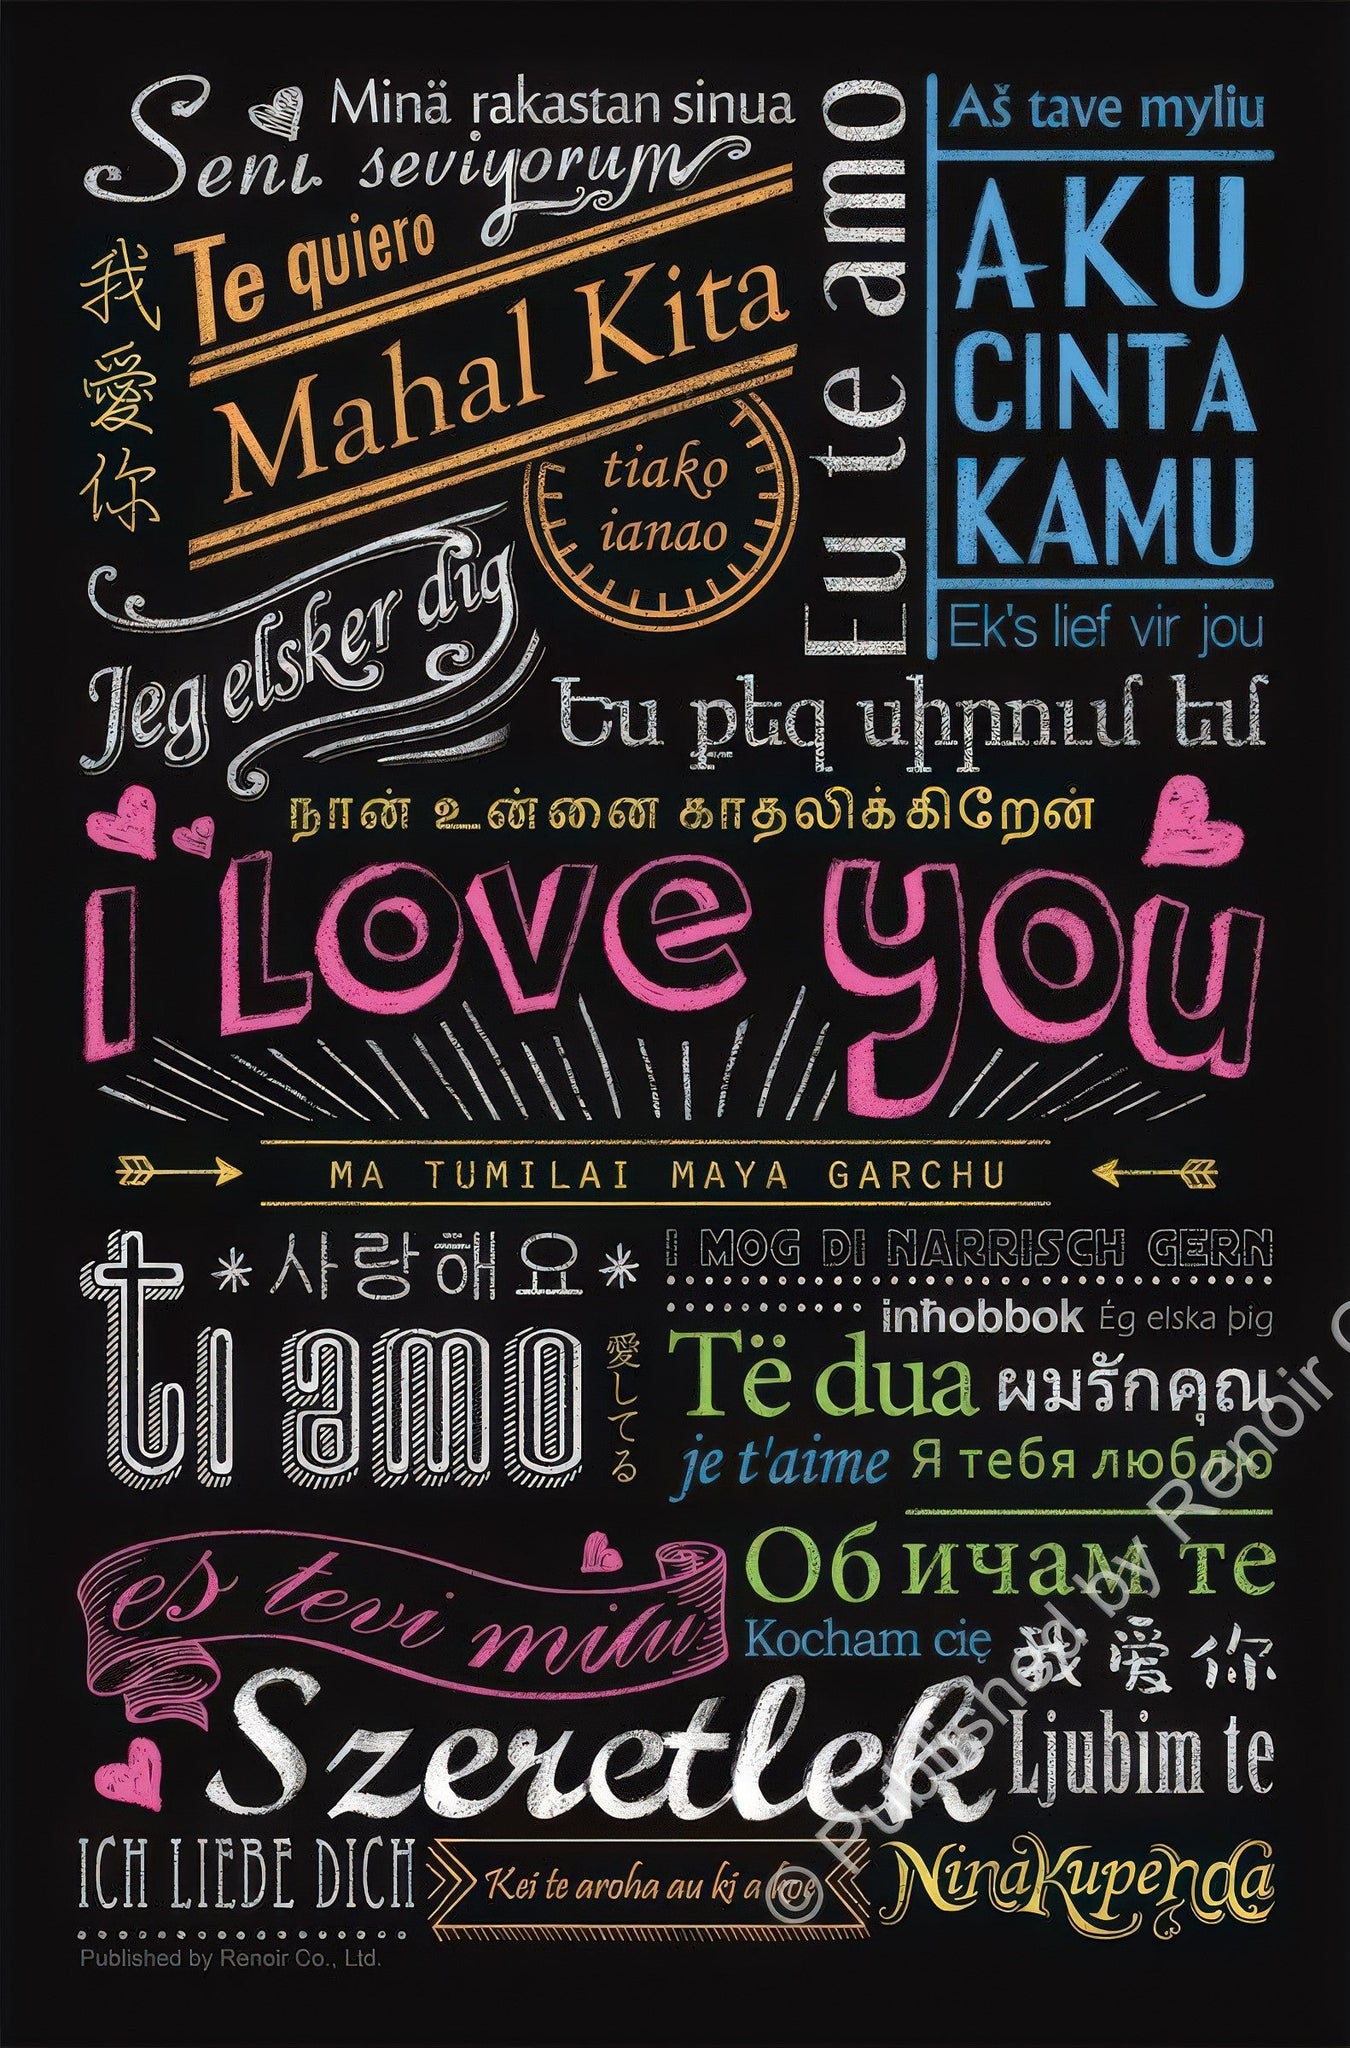 Minä rakastan sinua
Seni seviyorum
Te quiero
Mahal Kita
我愛你
tiako
ianao
Eu te amo
Aš tave myliu
AKU
CINTA
KAMU
Ek's lief vir jou
Jeg elsker dig
Ես քեզ սիրում եմ
நான் உன்னை காதலிக்கிறேன்
i Love you
MA TUMILAI MAYA GARCHU
*사랑해요*
ti amo
愛してる
I MOG DI NARRISCH GERN
inħobbok
Ég elska þig
Të dua
ผมรักคุณ
je t'aime
Я тебя люблю
es tevi milu
Обичам те
Kocham cię
我爱你
Szeretlek
Ljubim te
ICH LIEBE DICH
Kei te aroha au ki a koe
Nina Kupenda
Published by Renoir Co., Ltd.
© Published by Renoir C